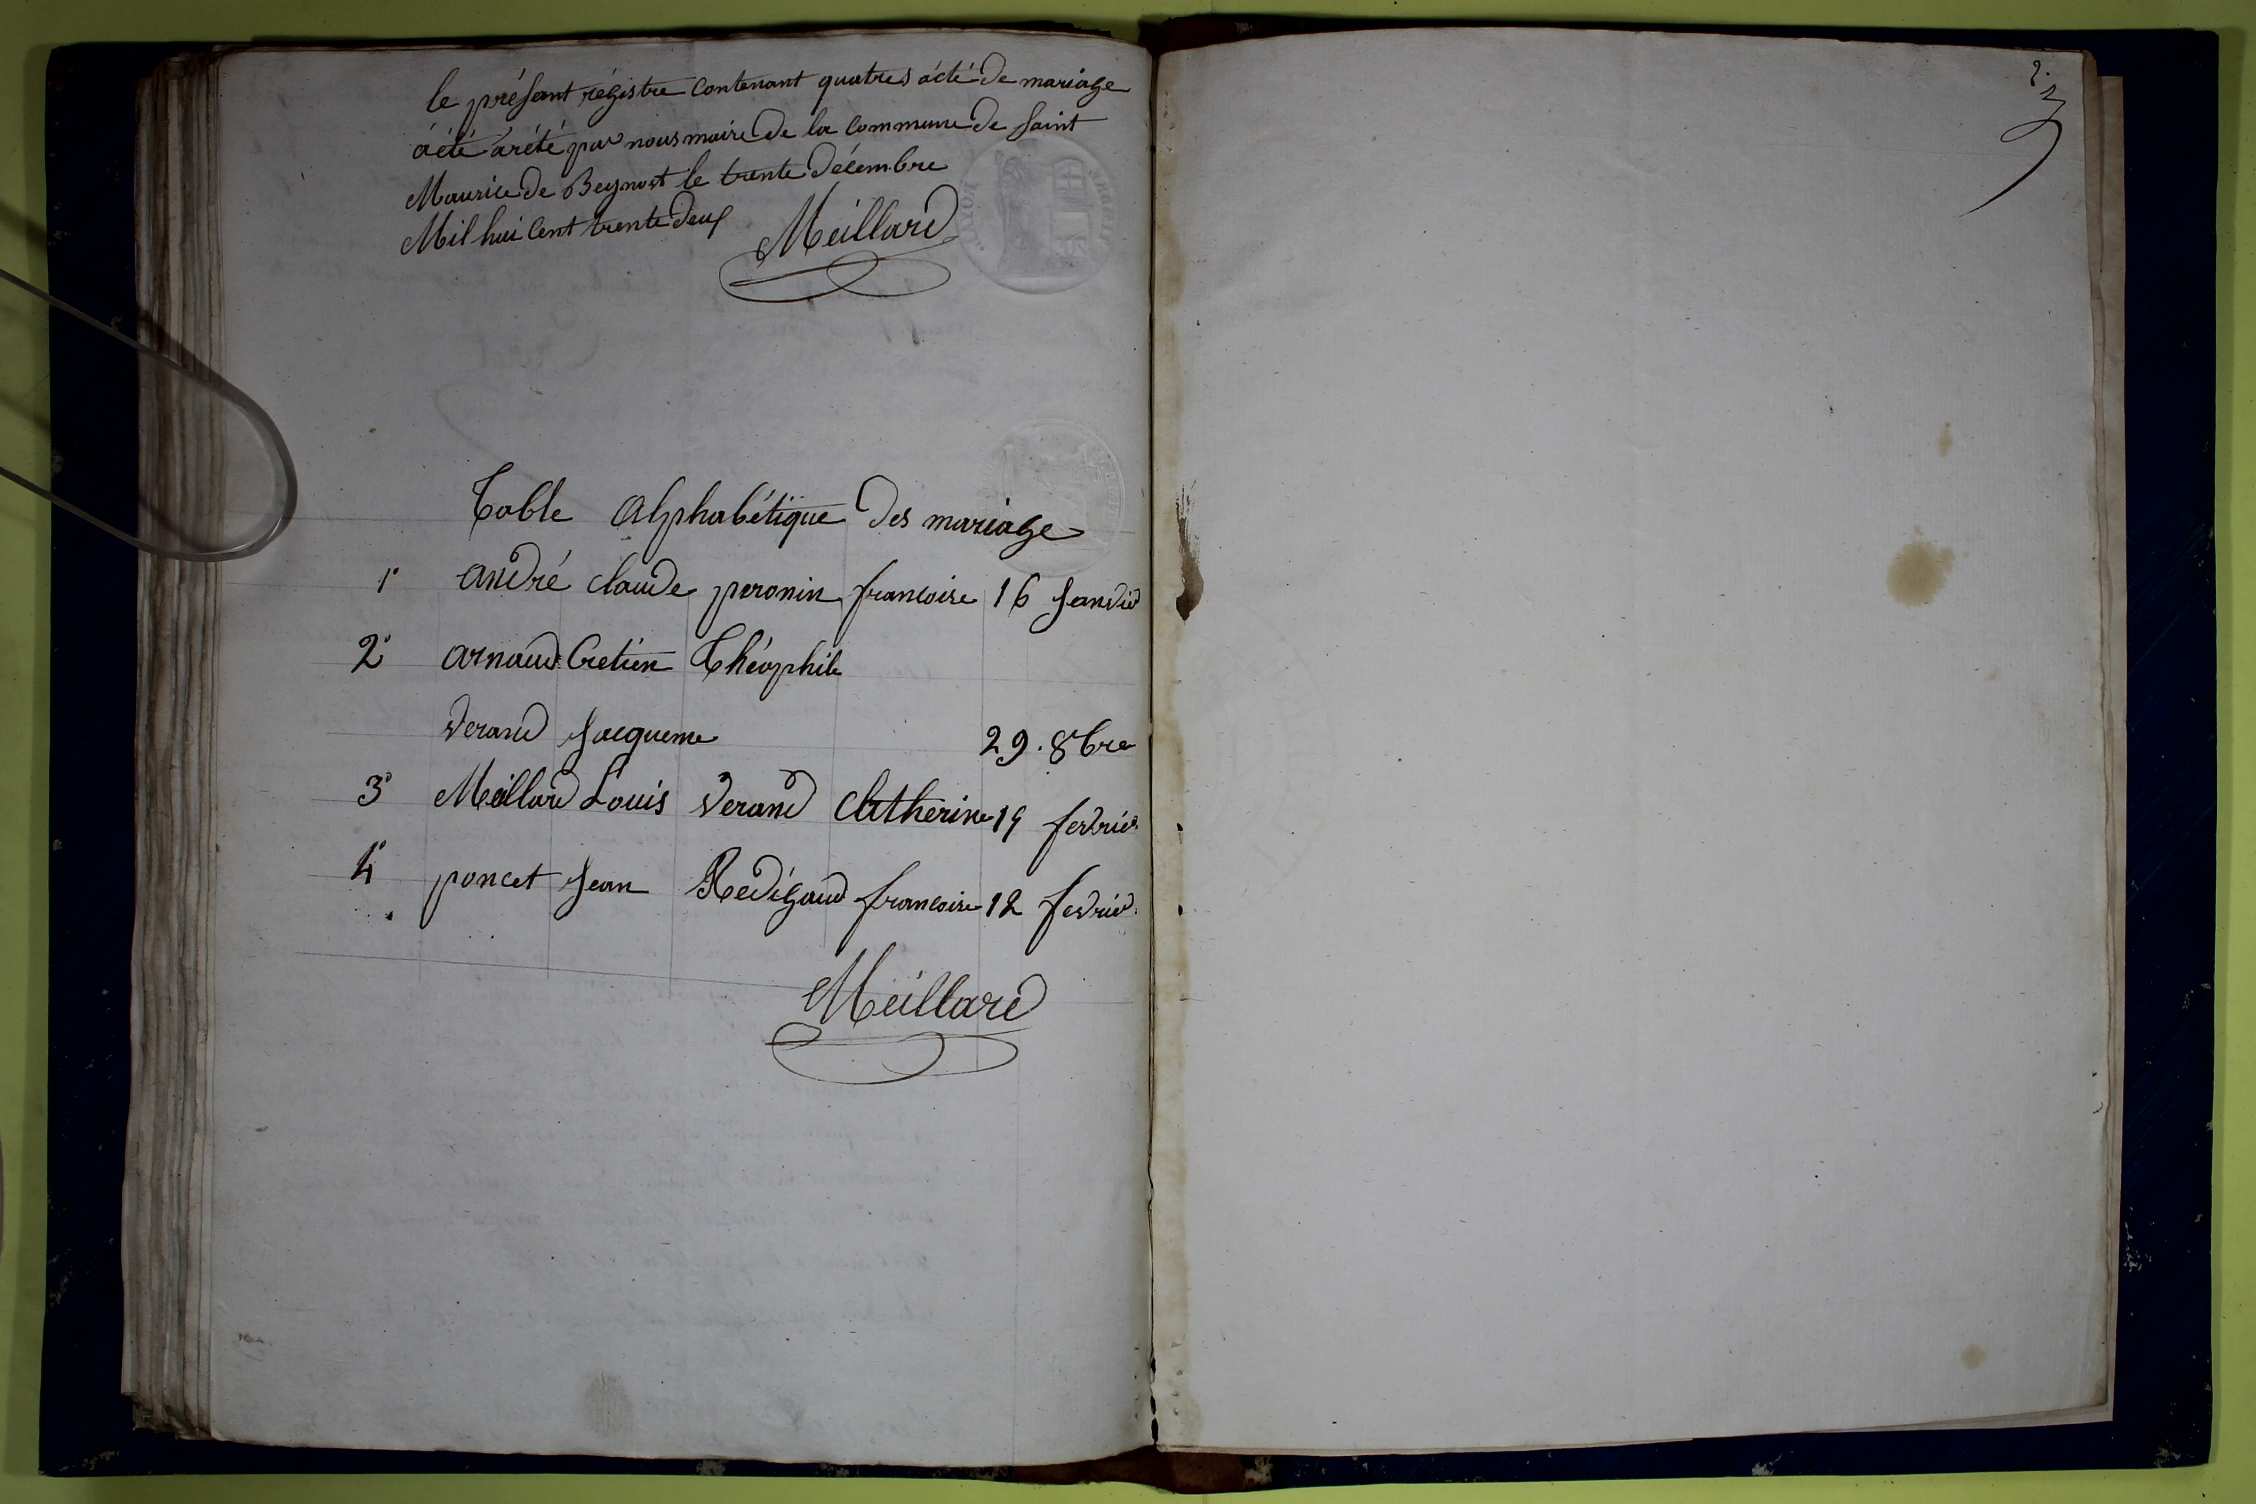 le présent régistre contenant quatres acté de mariage
áété arété par nous maire de la commune de saint
Maurice de Beynost le trente décembre
Mil hui cent trente deux Meillard
Table Alphabétique des mariage
1° André Claude peronin francoise 16 Janvier
2° Arnaud Cretien Théophile
Verand Jacqueme 29. 8bre
3° Meillard Louis Verand Catherine 19 fevrier
4° poncet Jean Redigaud francoise 12 fevrier
Meillard